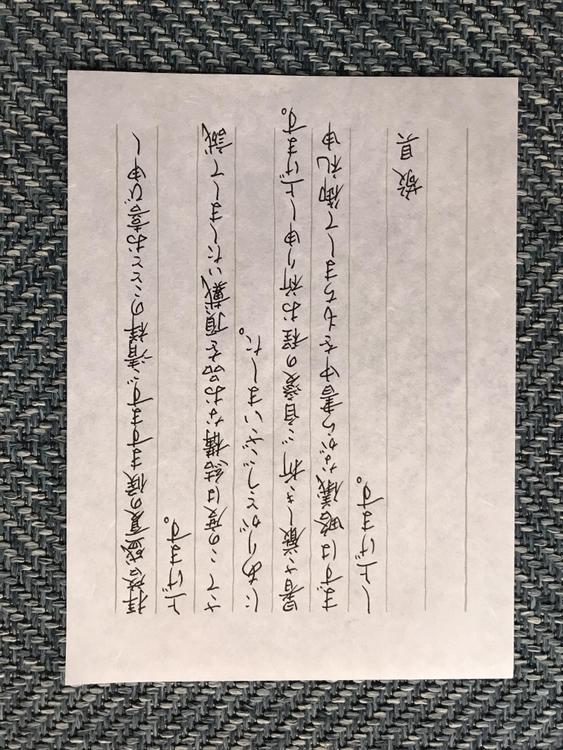 拝啓盛夏の候ますますご清祥のこととお喜び申し
上げます。
さてこの度は結構なお品を頂戴いたしまして誠
にありがとうございました。
暑さ厳しき折ご自愛の程お祈り申し上げます。
まずは略儀ながら書中をもちまして御礼申
し上げます。
敬具